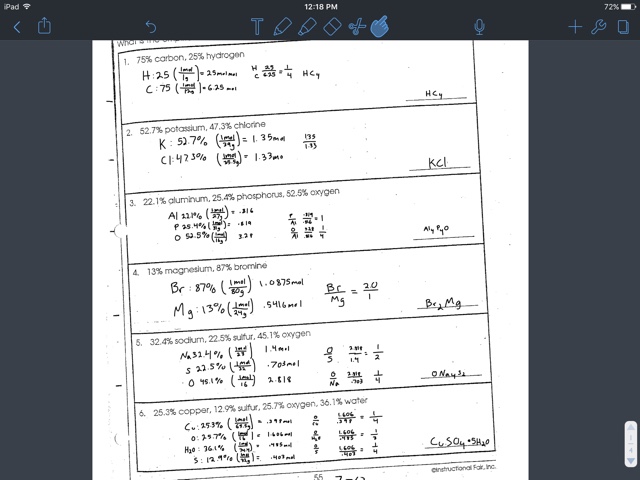 iPad
12:18 PM
72%
What is the empir
1. 75% carbon, 25% hydrogen
H: 25 (1mol/1g) = 25 mol
H/C 25/6.25 = 1/4 HC4
C: 75 (1mol/12g) = 6.25 mol
HC4
2. 52.7% potassium, 47.3% chlorine
K: 52.7% (1mol/39g) = 1.35mol
135/1.33
Cl: 47.3% (1mol/35.5g) = 1.33mo
KCl
3. 22.1% aluminum, 25.4% phosphorus, 52.5% oxygen
Al 22.1% (1mol/27g) = .816
P/Al .819/.816 = 1
P 25.4% (1mol/31g) = .819
O 52.5% (1mol/16g) 3.28
O/Al 3.28/.816 1/4
Al4P4O
4. 13% magnesium, 87% bromine
Br: 87% (1mol/80g) 1.0875mol
Br/Mg = 2.0/1
Mg: 13% (1mol/24g) .5416mol
Br2Mg
5. 32.4% sodium, 22.5% sulfur, 45.1% oxygen
Na 32.4% (1mol/23) 1.4mol
O/S 2.818/1.4 = 1/2
S 22.5% (1mol/32) .703mol
O 45.1% (1mol/16) 2.818
O/Na 2.818/.703 1/4
ONa4S2
6. 25.3% copper, 12.9% sulfur, 25.7% oxygen, 36.1% water
Cu: 25.3% (1mol/63.5g) = .398mol
O/Cu 1.606/.398 = 1/4
O: 25.7% (1mol/16) = 1.606mol
O/H2O 1.606/.485 = 1/3
H2O: 36.1% = .485mol
O/S 1.606/.403 = 1/4
S: 12.9% (1mol/32g) = .403mol
CuSO4•5H2O
55
©Instructional Fair, Inc.